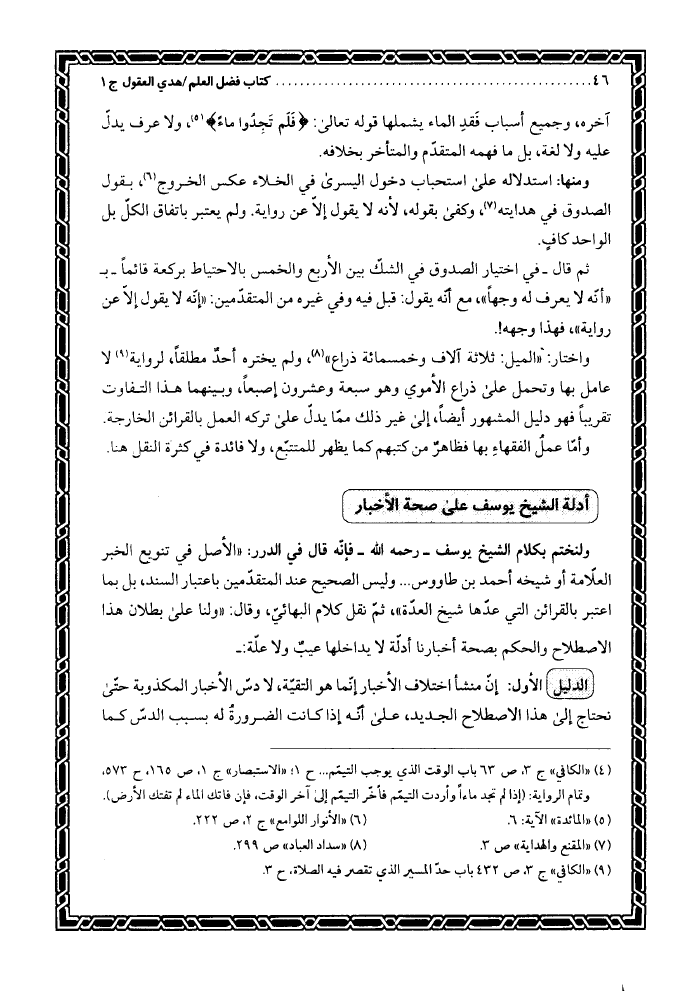 ٤٦ ................................................ كتاب فضل العلم/هدي العقول ج ١
آخره، وجميع أسباب فَقدِ الماء يشملها قوله تعالىٰ: ﴿فَلَم تَجِدُوا ماءً﴾(٥)، ولا عرف يدلّ
عليه ولا لغة، بل ما فهمه المتقدّم والمتأخر بخلافه.
ومنها: استدلاله علىٰ استحباب دخول اليسرىٰ في الخلاء عكس الخروج(٦)، بقول
الصدوق في هدايته(٧)، وكفىٰ بقوله، لأنه لا يقول إلاّ عن رواية. ولم يعتبر باتفاق الكلّ بل
الواحد كافٍ.
ثم قال ـ في اختيار الصدوق في الشكّ بين الأربع والخمس بالاحتياط بركعة قائماً ـ بـ
«أنّه لا يعرف له وجهاً»، مع أنّه يقول: قبل فيه وفي غيره من المتقدّمين: «إنّه لا يقول إلاّ عن
رواية»، فهذا وجهه!.
واختار: «الميل: ثلاثة آلاف وخمسمائة ذراع»(٨)، ولم يختره أحدٌ مطلقاً، لرواية(٩) لا
عامل بها وتحمل علىٰ ذراع الأموي وهو سبعة وعشرون إصبعاً، وبينهما هذا التفاوت
تقريباً فهو دليل المشهور أيضاً، إلىٰ غير ذلك ممّا يدلّ علىٰ تركه العمل بالقرائن الخارجة.
وأمّا عملُ الفقهاءِ بها فظاهرٌ من كتبهم كما يظهر للمتتبّع، ولا فائدة في كثرة النقل هنا.
أدلة الشيخ يوسف علىٰ صحة الأخبار
ولنختم بكلام الشيخ يوسف ـ رحمه الله ـ فإنّه قال في الدرر: «الأصل في تنويع الخبر
العلّامة أو شيخه أحمد بن طاووس... وليس الصحيح عند المتقدّمين باعتبار السند، بل بما
اعتبر بالقرائن التي عدّها شيخ العدّة»، ثمّ نقل كلام البهائيّ، وقال: «ولنا علىٰ بطلان هذا
الاصطلاح والحكم بصحة أخبارنا أدلّة لا يداخلها عيبٌ ولا علّة:ـ
الدليل الأول: إنّ منشأ اختلاف الأخبار إنّما هو التقيّة، لا دسّ الأخبار المكذوبة حتّىٰ
نحتاج إلىٰ هذا الاصطلاح الجديد، علىٰ أنّه إذا كانت الضرورةُ له بسبب الدسّ كما
(٤) «الكافي» ج ٣، ص ٦٣ باب الوقت الذي يوجب التيمّم... ح ١؛ «الاستبصار» ج ١، ص ١٦٥، ح ٥٧٣،
وتمام الرواية: (إذا لم تجد ماءاً وأردت التيمّم فأخّر التيمّم إلىٰ آخر الوقت، فإن فاتك الماء لم تفتك الأرض).
(٥) «المائدة» الآية: ٦.
(٦) «الأنوار اللوامع» ج ٢، ص ٢٢٢.
(٧) «المقنع والهداية» ص ٣.
(٨) «سداد العباد» ص ٢٩٩.
(٩) «الكافي» ج ٣، ص ٤٣٢ باب حدّ المسير الذي تقصر فيه الصلاة، ح ٣.